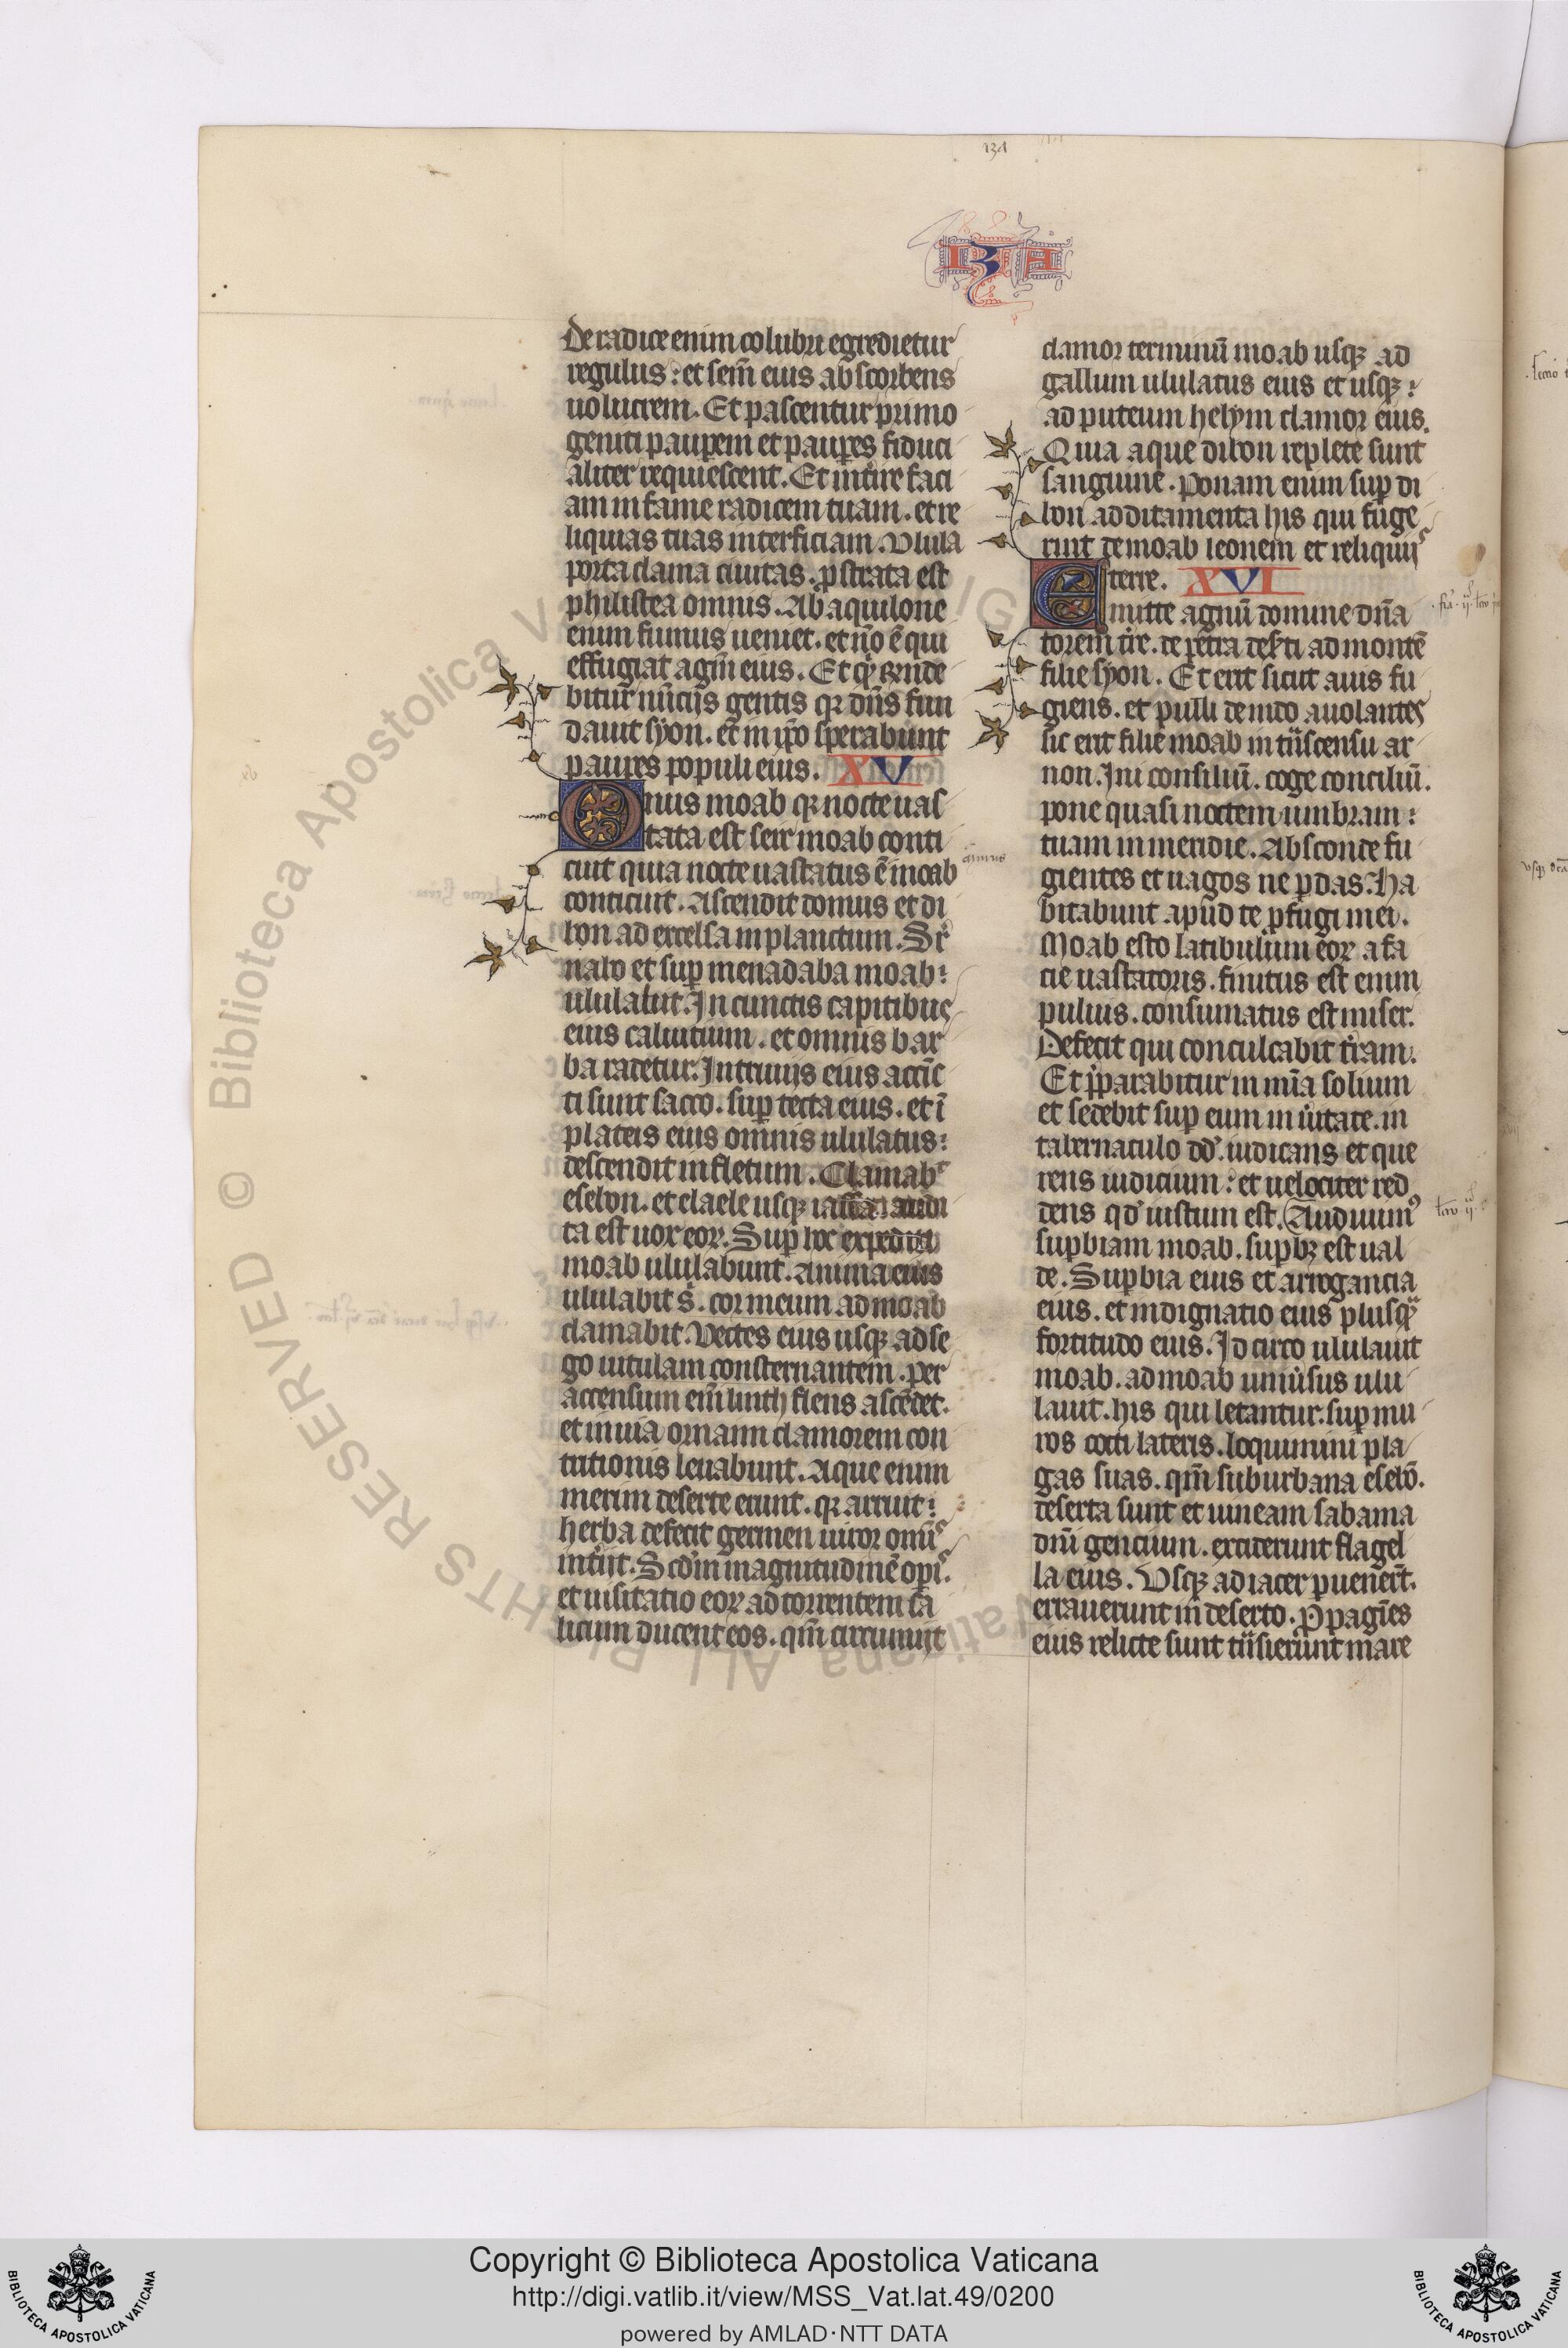 134
ISA
De radice enim colubri egredietur
regulus: et sem̄ eius absorbens
uolucrem. Et pascentur primo
geniti pauꝑem et pauꝑes fiduci
aliter requiescent. Et int̓ire faci
am in fame radicem tuam. et re
liquias tuas interficiam. Vlula
porta clama ciuitas. ꝓstrata est
philistea omnis. Ab aquilone
enim fumus ueniet. et nō ē qui
effugiat agm̄ eius. Et
bitur nūcijs gentis qꝛ dn̄s fun
dauit syon. et in ip̄o sperabunt
pauꝑes populi eius. XV
Onus moab qꝛ nocte uas
tata est
moab conti
cuit quia nocte uastatus ē moab
conticuit. Ascendit domus et di
bon ad excelsa in planctum. Sr̄
nabo et suꝑ menadaba moab:
ululabit. In cunctis capitibus
eius caluitium. et omnis bar
ba radetur. In triuijs eius accīc
ti sunt sacco. suꝑ tecta eius. et ī
plateis eius omnis ululatus:
descendit in fletum. Clamabᵗ
esebon. et eleale usqꝫ iassa. audi
ta est uox eoꝝ. Suꝑ hoc expediti
moab ululabunt. Anima eius
ululabit s̄. cor meum ad moab
clamabit. Vectes eius usqꝫ ad se
gor uitulam consternantem. per
accensum em̄ luith flens ascēdet.
et in uia ornaim clamorem con
tritionis leuabunt. Aque enim
nemrim deserte erunt. qꝛ aruit:
herba defecit germen uiror omīs
int̓ijt. Scd̓m magnitudinē opis.
et uisitatio eoꝝ ad torrentem sa
licium ducent eos. qm̄ circuiuit
clamor terminū moab usqꝫ ad
gallum ululatus eius et usqꝫ:
ad puteum helym clamor eius.
Quia aque dibon replete sunt
sanguine. Ponam enim suꝑ di
bon additamenta his qui fuge
rint de moab leonem et reliquijs
terre. XVI
Emitte agnū domine dn̄a
torem tr̄e. de petra des̓ti ad montē
filie syon. Et erit sicut auis fu
giens. et pulli de nido auolantes
sic erunt filie moab in tr̄scensu ar
non. Ini consiliū. coge conciliū.
pone quasi noctem umbram:
tuam in meridie. Absconde fu
gientes et uagos ne ꝑdas. Ha
bitabunt apud te ꝓfugi mei.
Moab esto latibulum eoꝝ a fa
cie uastatoris. finitus est enim
puluis. consumatus est miser.
Defecit qui conculcabit tr̄am.
Et p̄parabitur in mīa solium
et sedebit suꝑ eum in u̓itate. in
tabernaculo dd̓. iudicans et que
rens iudicium: et uelociter red
dens qd̓ iustum est. Audiuimꝰ
suꝑbiam moab. suꝑbꝫ est ual
de. Suꝑbia eius et arrogancia
eius. et indignatio eius plusqᷓ
fortitudo eius. Idcirco ululauit
moab. ad moab uniu̓sus ulu
lauit. his qui letantur. suꝑ mu
ros cocti lateris. loquimini pla
gas suas. qm̄ suburbana esebō.
deserta sunt et uineam sabama
dn̄i gencium. exciderunt flagel
la eius. Vsqꝫ ad iacer ꝑuenert̄.
errauerunt in deserto. Ꝓpagīes
eius relicte sunt tr̄sierunt mare
Copyright © Biblioteca Apostolica Vaticana
http://digi.vatlib.it/view/MSS_Vat.lat.49/0200
powered by AMLAD·NTT DATA
BIBLIOTECA APOSTOLICA VATICANA
BIBLIOTECA APOSTOLICA VATICANA